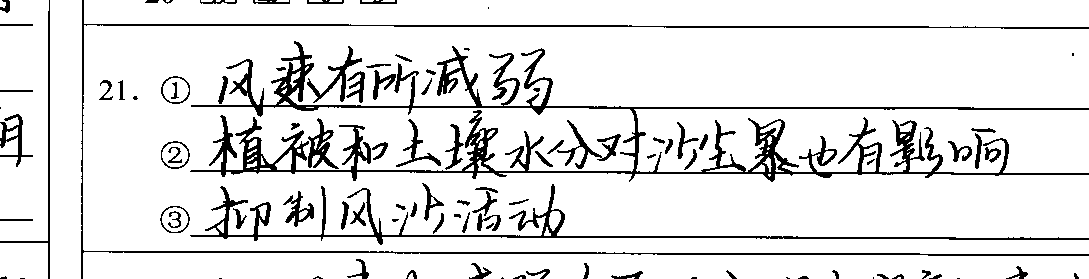 21. ① 风速有所减弱
② 植被和土壤水分对沙尘暴也有影响
③ 抑制风沙活动